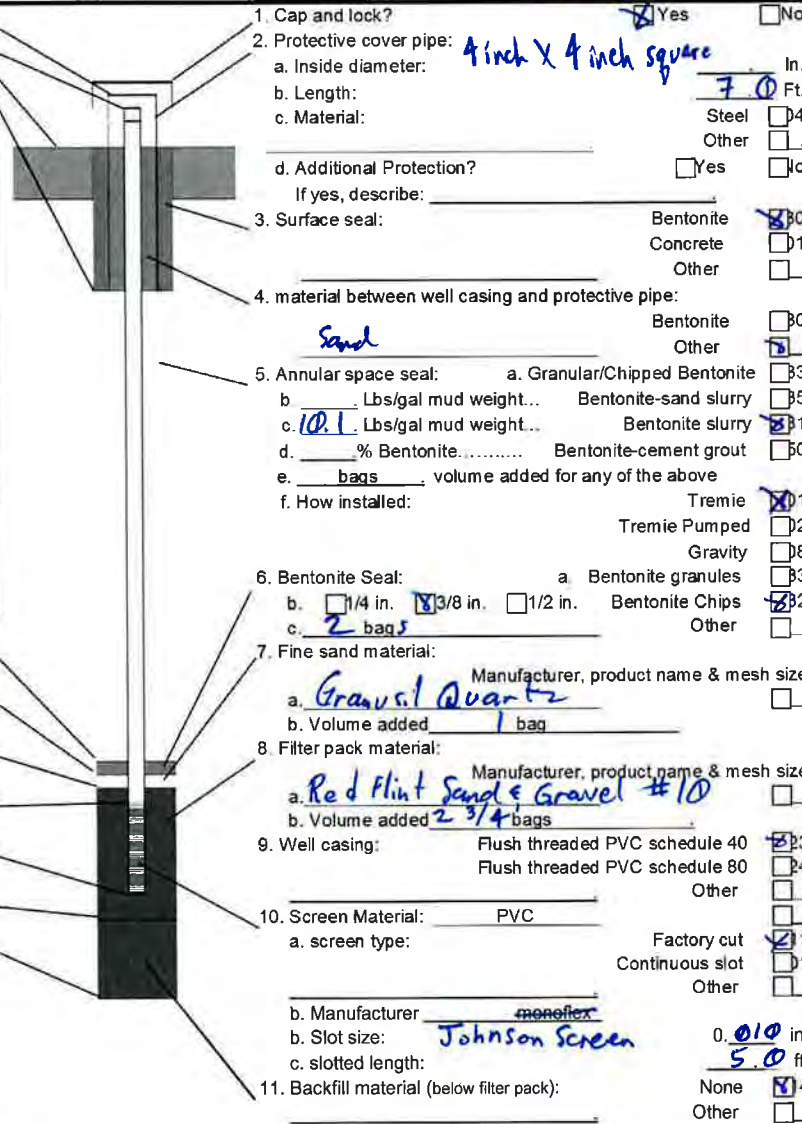 1. Cap and lock? Yes No
2. Protective cover pipe: 4 inch X 4 inch square
a. Inside diameter: In.
b. Length: 7.0 Ft.
c. Material: Steel 04
Other
d. Additional Protection? Yes No
If yes, describe:
3. Surface seal: Bentonite 30
Concrete 01
Other
4. material between well casing and protective pipe:
Bentonite 30
Sand Other
5. Annular space seal: a. Granular/Chipped Bentonite 33
b. Lbs/gal mud weight... Bentonite-sand slurry 35
c. 10.1. Lbs/gal mud weight... Bentonite slurry 31
d. % Bentonite.......... Bentonite-cement grout 50
e. bags . volume added for any of the above
f. How installed: Tremie 01
Tremie Pumped 02
Gravity 08
6. Bentonite Seal: a. Bentonite granules 33
b. 1/4 in. 3/8 in. 1/2 in. Bentonite Chips 32
c. 2 bags Other
7. Fine sand material:
Manufacturer, product name & mesh size
a. Granusil Quartz
b. Volume added 1 bag
8. Filter pack material:
Manufacturer, product name & mesh size
a. Red Flint Sand & Gravel #10
b. Volume added 2 3/4 bags
9. Well casing: Flush threaded PVC schedule 40 23
Flush threaded PVC schedule 80 24
Other
10. Screen Material: PVC
a. screen type: Factory cut 11
Continuous slot 01
Other
b. Manufacturer monoflex
b. Slot size: Johnson Screen 0.010 in
c. slotted length: 5.0 ft
11. Backfill material (below filter pack): None 14
Other